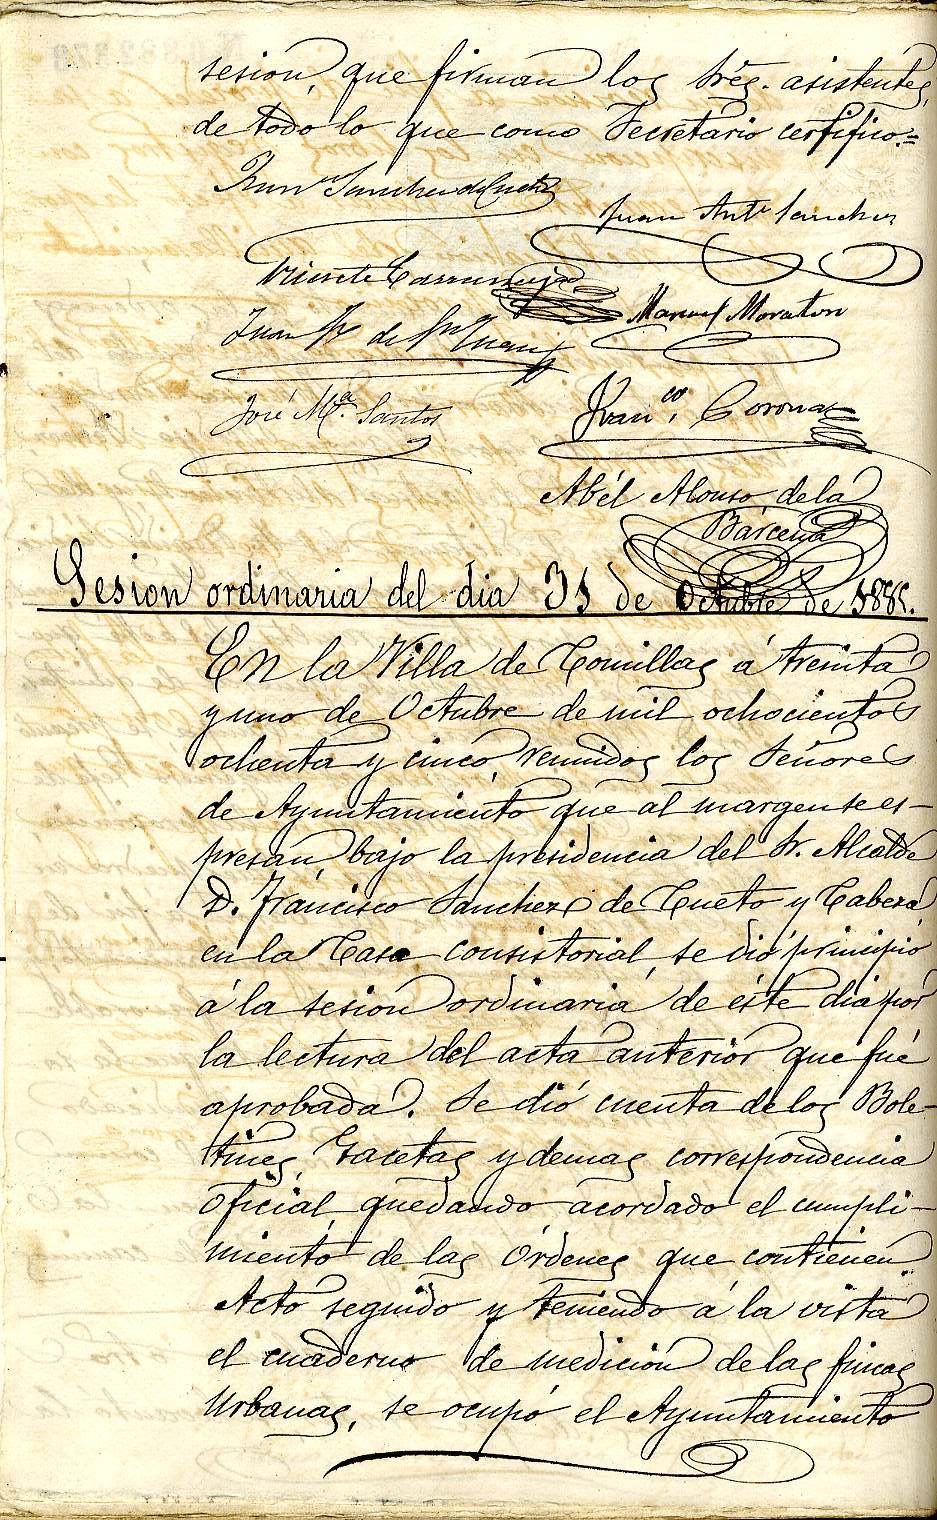 sesion, que firman los Sres. asistentes,
de todo lo que como Secretario certifico.=
Fran.co Sanchez de Cueto
Juan Ant.o Sanchez
Vicente
Manuel Moraton
Juan de
José M.a Santos
Fran.co Corona
Abél Alonso de la
Bárcena
Sesion ordinaria del dia 31 de Octubre de 1885.
En la Villa de Comillas á treinta
y uno de Octubre de mil ochocientos
ochenta y cinco, reunidos los Señores
de Ayuntamiento que al margen se es-
presan bajo la presidencia del Sr. Alcalde
D. Fráncisco Sanchez de Cueto y Cabeza,
en la Casa consistorial, se dió principio
á la sesion ordinaria de éste dia por
la lectura del acta anterior que fué
aprobada. Se dió cuenta de los Bole-
tines, Gacetas y demas correspondencia
oficial quedando acordado el cumpli-
miento de las órdenes que contienen.
Acto seguido y teniendo á la vista
el cuaderno de medición de las fincas
Urbanas, se ocupó el Ayuntamiento